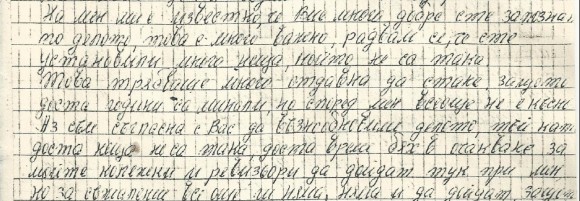 На мен ми е известно, че Вие много добре сте запозна
то делото, това е много важно, радвам се, че сте
установили много неща, които не са така.
Това трябваше много отдавна да стане, защото
доста години са минали, но според мен всеобще не е късн
Аз съм съгласна с Вас да възобновим делото, тъй като
доста неща не са така, доста време бях в очакване за
моите и ревизьори да дойдат тук при мен
но за съжаление все още ги няма, няма и да дойдат, защот